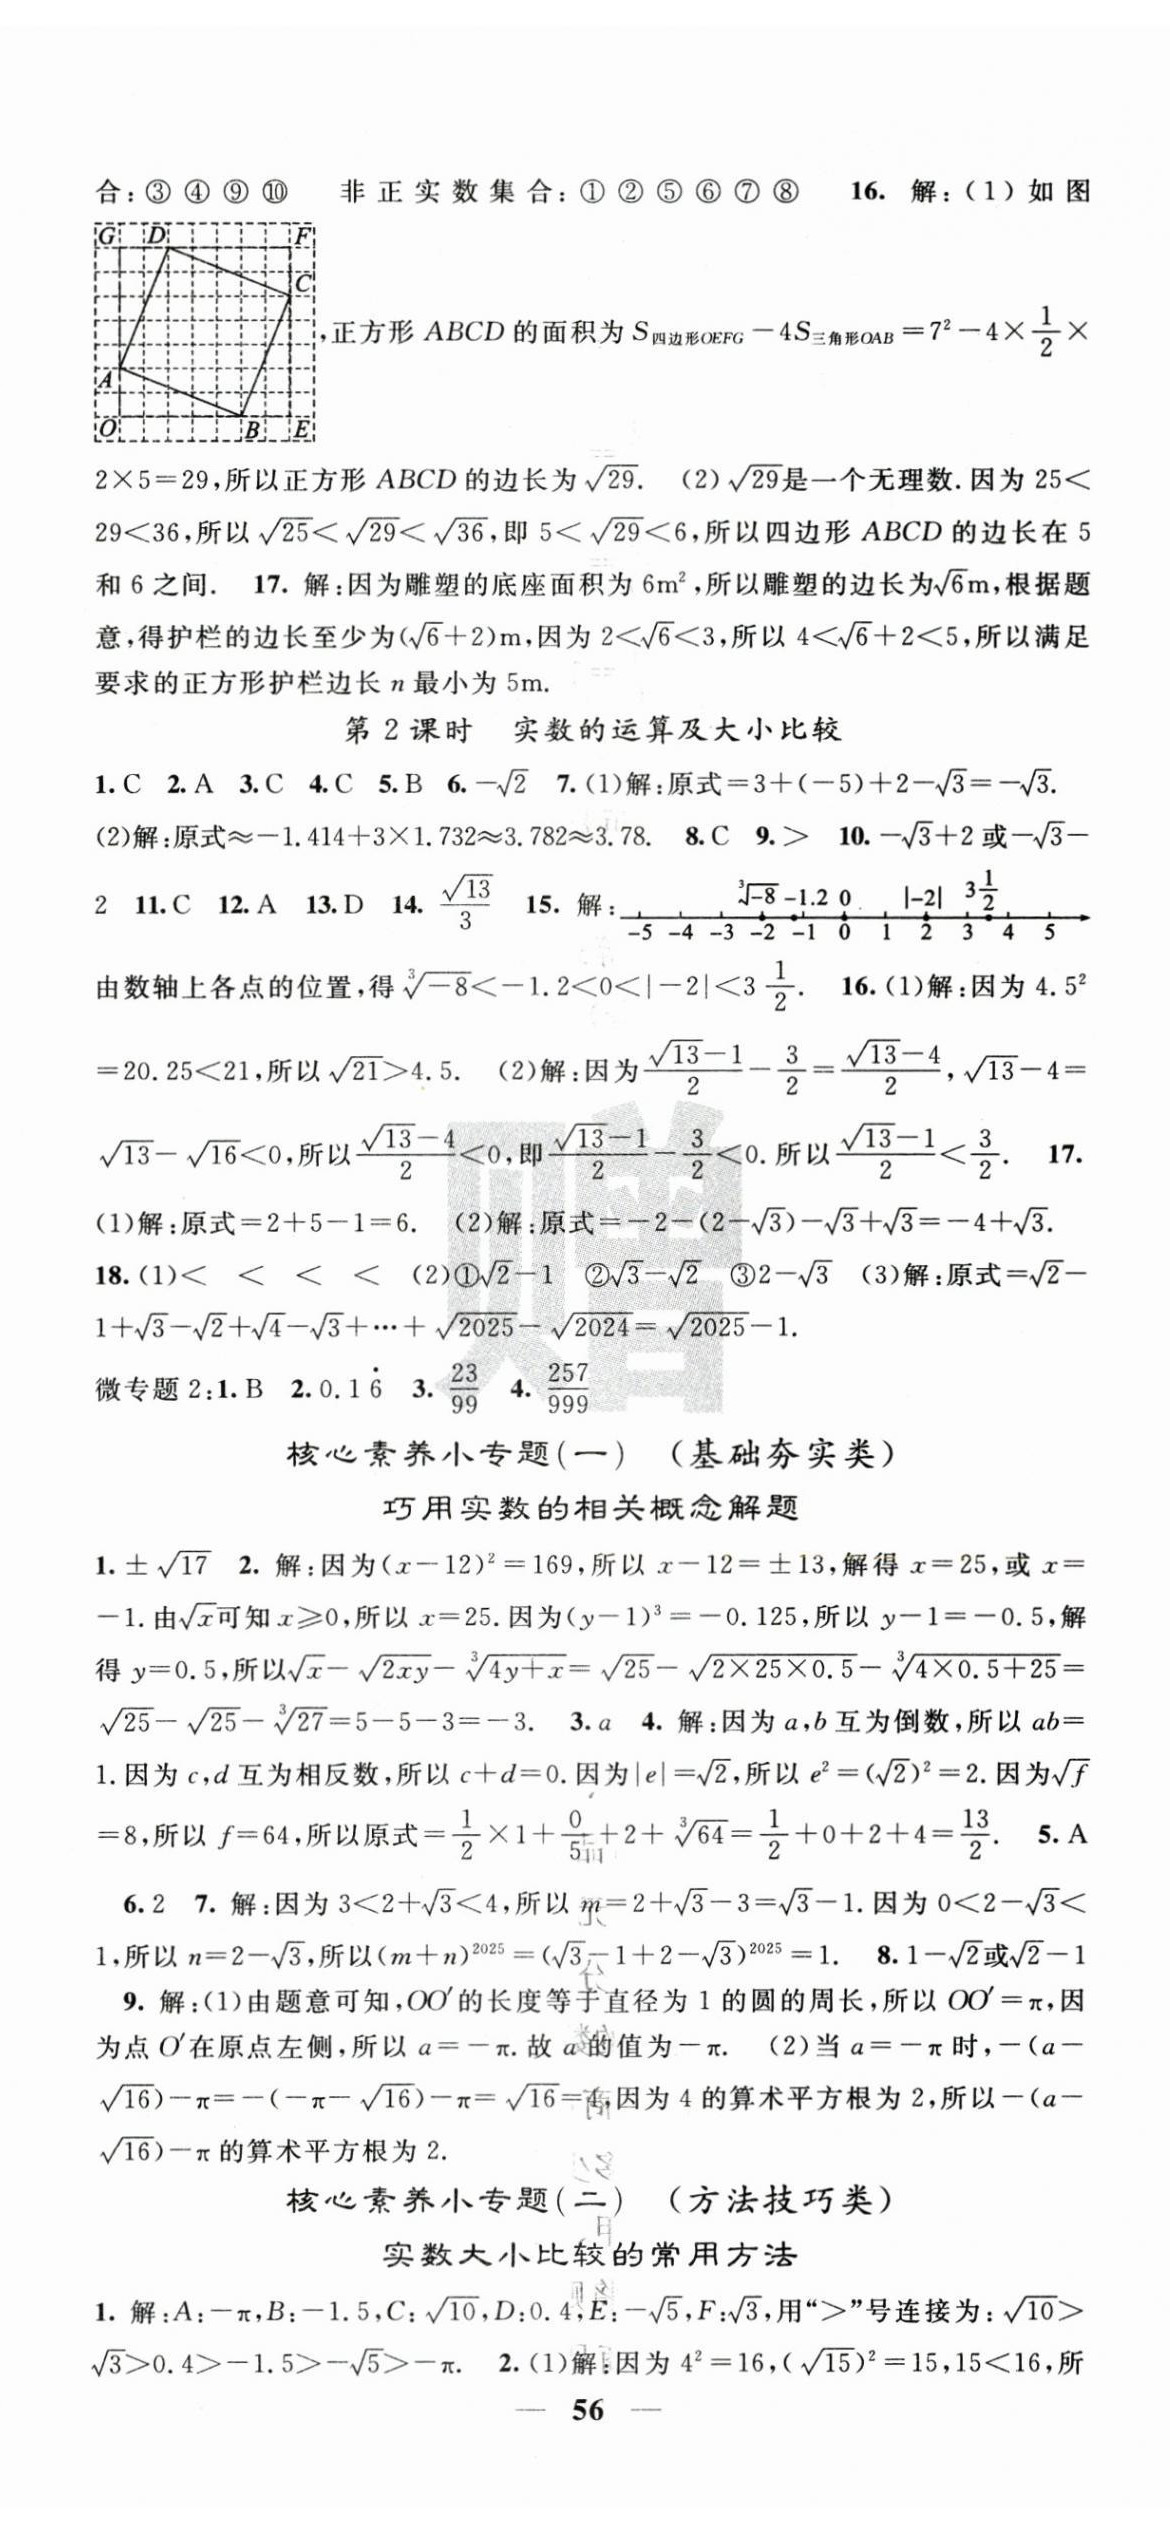 合:③ ④ ⑨ ⑩ 非正实数集合:① ② ⑤ ⑥ ⑦ ⑧ 16. 解:(1)如图
G D F
C
,正方形 ABCD 的面积为 S四边形OEFG－4S三角形OAB＝7²－4×1/2×
A
O B E
2×5＝29,所以正方形 ABCD 的边长为√29. (2)√29是一个无理数.因为 25＜
29＜36,所以√25＜√29＜√36,即 5＜√29＜6,所以四边形 ABCD 的边长在 5
和 6 之间. 17. 解:因为雕塑的底座面积为 6m²,所以雕塑的边长为√6m,根据题
意,得护栏的边长至少为(√6＋2)m,因为 2＜√6＜3,所以 4＜√6＋2＜5,所以满足
要求的正方形护栏边长 n 最小为 5m.
第 2 课时 实数的运算及大小比较
1. C 2. A 3. C 4. C 5. B 6. －√2 7. (1)解:原式＝3＋(－5)＋2－√3＝－√3.
(2)解:原式≈－1.414＋3×1.732≈3.782≈3.78. 8. C 9. ＞ 10. －√3＋2 或－√3－
2 11. C 12. A 13. D 14. √13/3 15. 解: ∛-8 -1.2 0 |-2| 3 1/2
-5 -4 -3 -2 -1 0 1 2 3 4 5
由数轴上各点的位置,得∛－8＜－1.2＜0＜|－2|＜3 1/2. 16. (1)解:因为 4.5²
＝20.25＜21,所以√21＞4.5. (2)解:因为(√13－1)/2－3/2＝(√13－4)/2,√13－4＝
√13－√16＜0,所以(√13－4)/2＜0,即(√13－1)/2－3/2＜0.所以(√13－1)/2＜3/2. 17.
(1)解:原式＝2＋5－1＝6. (2)解:原式＝－2－(2－√3)－√3＋√3＝－4＋√3.
18. (1)＜ ＜ ＜ ＜ (2)①√2－1 ②√3－√2 ③2－√3 (3)解:原式＝√2－
1＋√3－√2＋√4－√3＋…＋√2025－√2024＝√2025－1.
微专题 2:1. B 2. 0.16̇ 3. 23/99 4. 257/999
赠
核心素养小专题(一) (基础夯实类)
巧用实数的相关概念解题
1. ±√17 2. 解:因为(x－12)²＝169,所以 x－12＝±13,解得 x＝25,或 x＝
－1.由√x可知 x≥0,所以 x＝25.因为(y－1)³＝－0.125,所以 y－1＝－0.5,解
得 y＝0.5,所以√x－√2xy－∛4y＋x＝√25－√2×25×0.5－∛4×0.5＋25＝
√25－√25－∛27＝5－5－3＝－3. 3. a 4. 解:因为 a,b 互为倒数,所以 ab＝
1.因为 c,d 互为相反数,所以 c＋d＝0.因为|e|＝√2,所以 e²＝(√2)²＝2.因为√f
＝8,所以 f＝64,所以原式＝1/2×1＋0/5＋2＋∛64＝1/2＋0＋2＋4＝13/2. 5. A
6. 2 7. 解:因为 3＜2＋√3＜4,所以 m＝2＋√3－3＝√3－1.因为 0＜2－√3＜
1,所以 n＝2－√3,所以(m＋n)²⁰²⁵＝(√3－1＋2－√3)²⁰²⁵＝1. 8. 1－√2或√2－1
9. 解:(1)由题意可知,OO′的长度等于直径为 1 的圆的周长,所以 OO′＝π,因
为点 O′在原点左侧,所以 a＝－π.故 a 的值为－π. (2)当 a＝－π 时,－(a－
√16)－π＝－(－π－√16)－π＝√16＝4,因为 4 的算术平方根为 2,所以－(a－
√16)－π 的算术平方根为 2.
核心素养小专题(二) (方法技巧类)
实数大小比较的常用方法
1. 解:A:－π,B:－1.5,C:√10,D:0.4,E:－√5,F:√3,用“＞”号连接为:√10＞
√3＞0.4＞－1.5＞－√5＞－π. 2. (1)解:因为 4²＝16,(√15)²＝15,15＜16,所
— 56 —